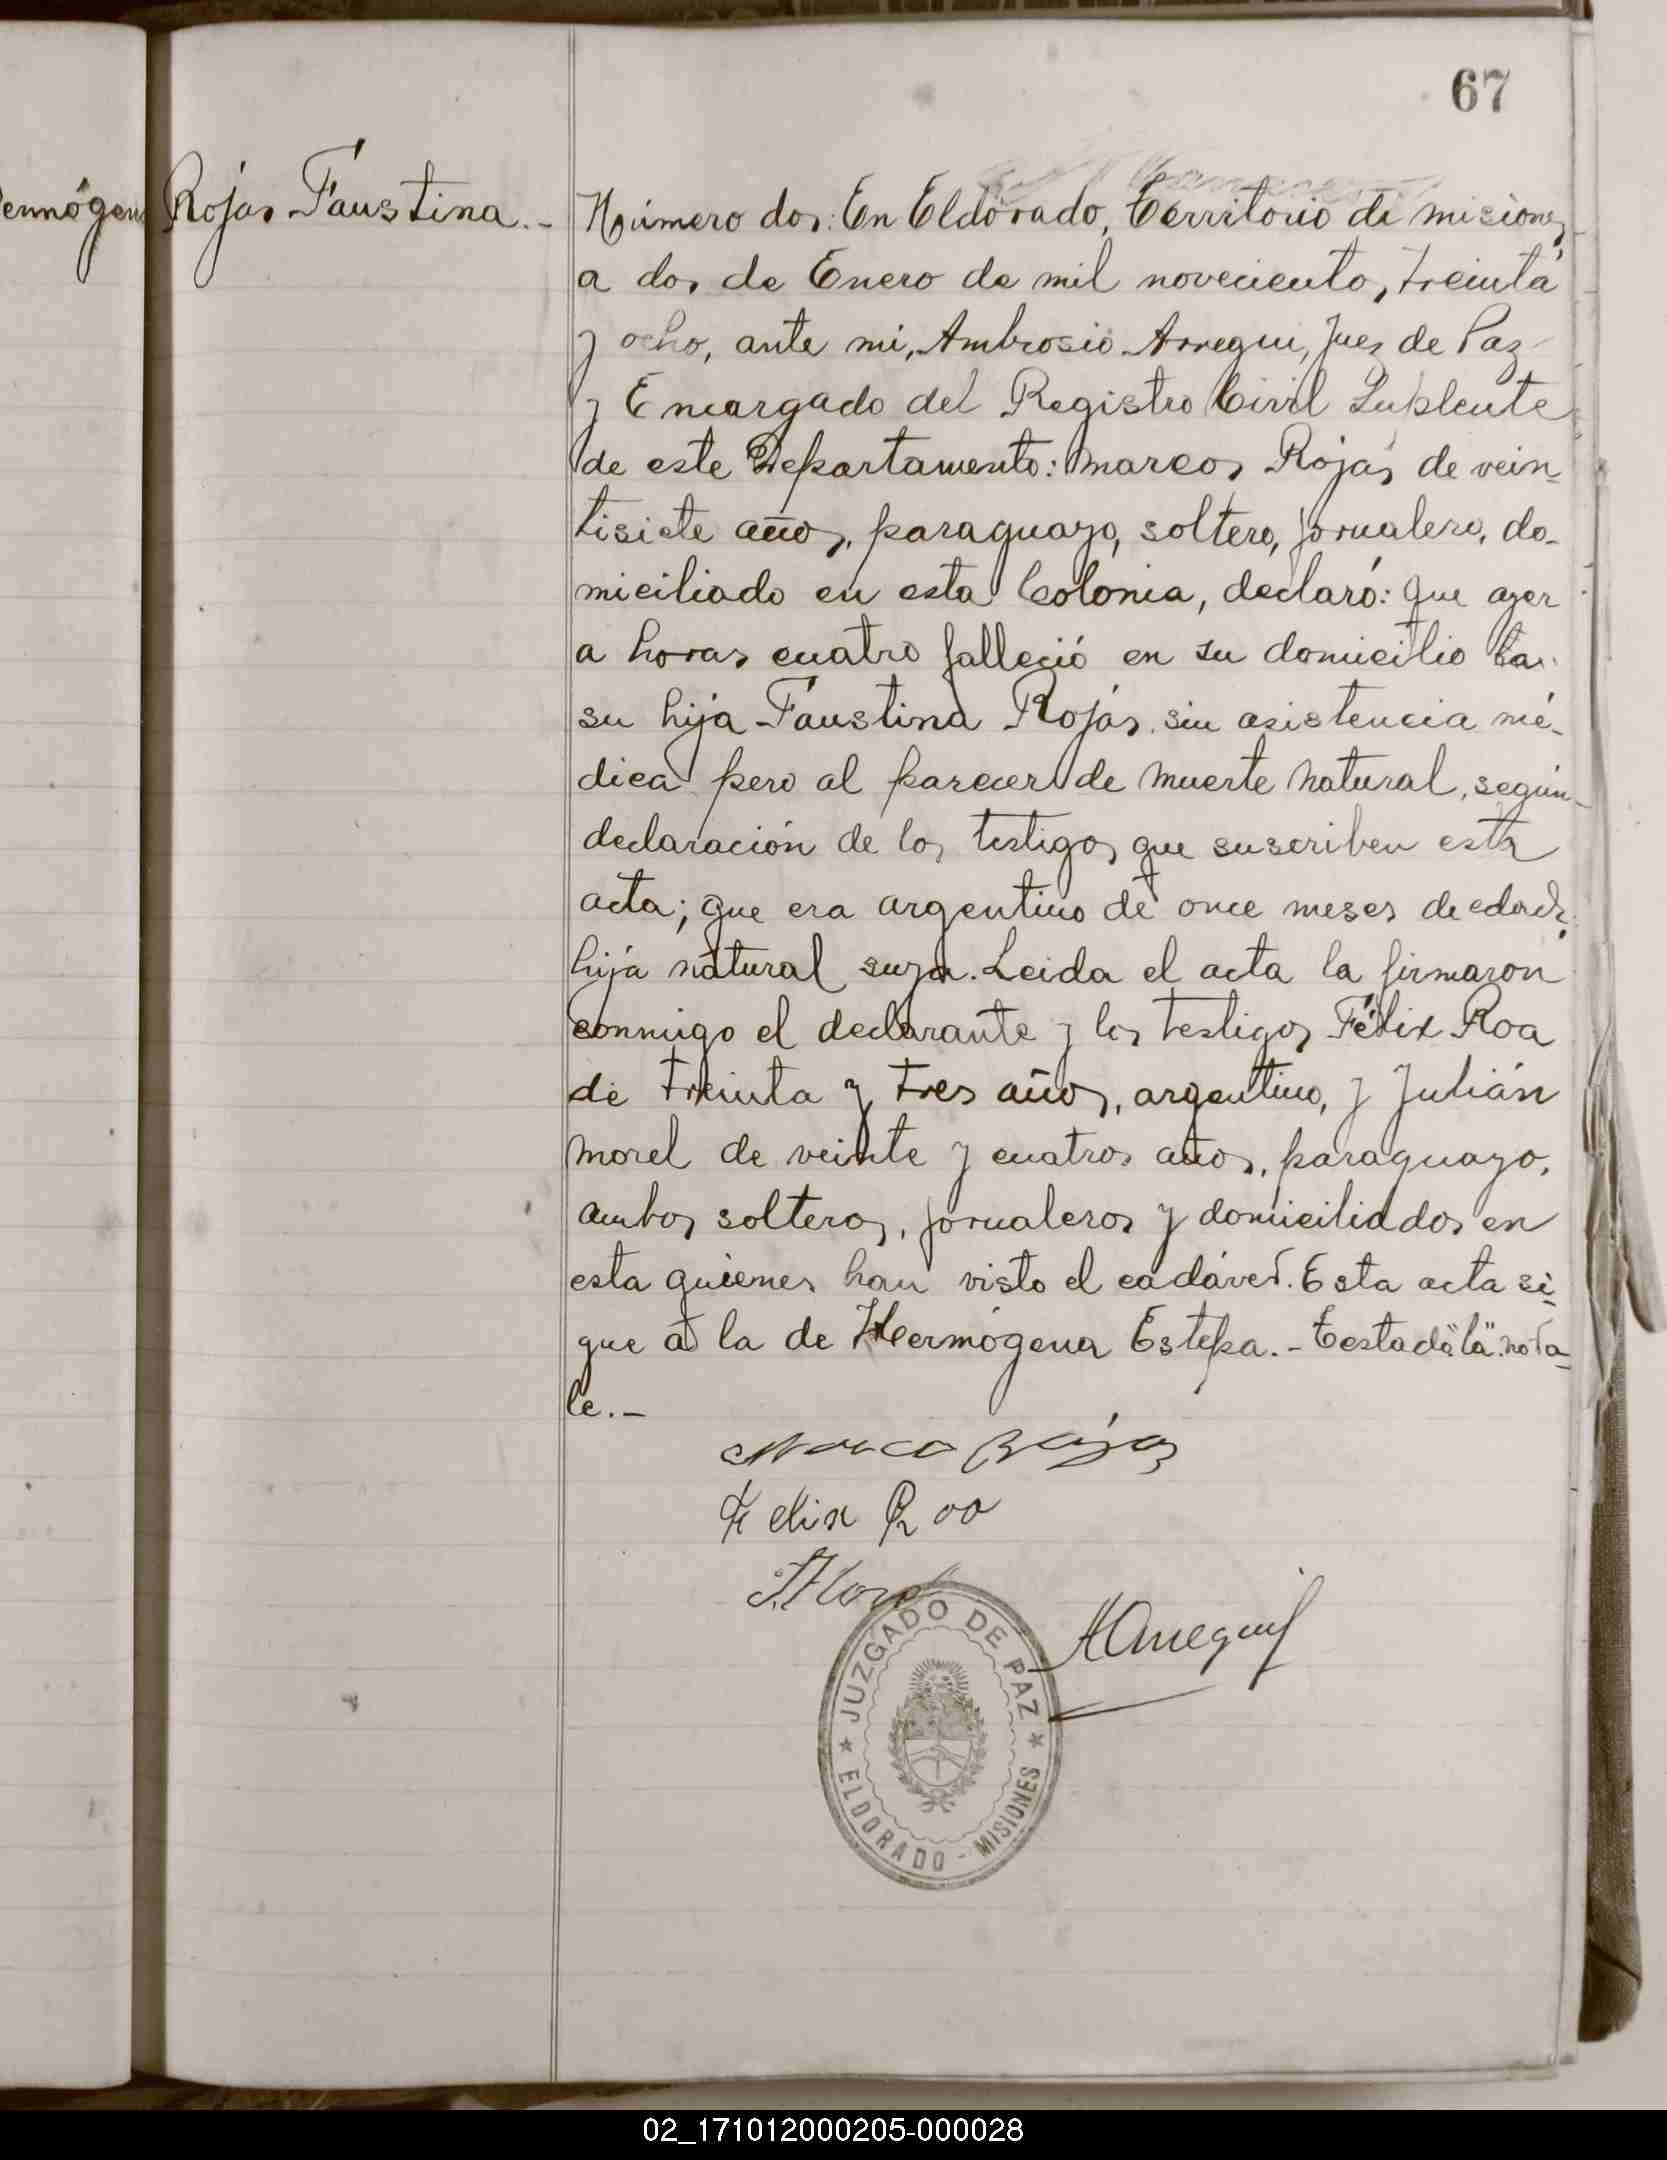 67
Rojas Faustina.-
Número dos: En Eldorado, Territorio de misiones,
a dos de Enero de mil novecientos treinta
y ocho, ante mi, Ambrosio Arregui, Juez de Paz
y Encargado del Registro Civil Suplente
de este Departamento: Marcos Rojas de vein-
tisiete años, paraguayo, soltero, jornalero, do-
miciliado en esta Colonia, declaró: que ayer
a horas cuatro falleció en su domicilio la
su hija Faustina Rojas, sin asistencia mé-
dica pero al parecer de muerte natural, según
declaración de los testigos que suscriben esta
acta; que era argentino de once meses de edad,
hija natural suya. Leida el acta la firmaron
conmigo el declarante y los testigos Félix Roa
de treinta y tres años, argentino, y Julián
Morel de veinte y cuatros años, paraguayo,
ambos solteros, jornaleros y domiciliados en
esta quienes han visto el cadáver. Esta acta si-
gue a la de Hermógena Estepa.- Testado "la" no va-
le.-
Marco Rojas
Felix Roa
J. Morel
AArregui
JUZGADO DE PAZ
ELDORADO - MISIONES
02_171012000205-000028